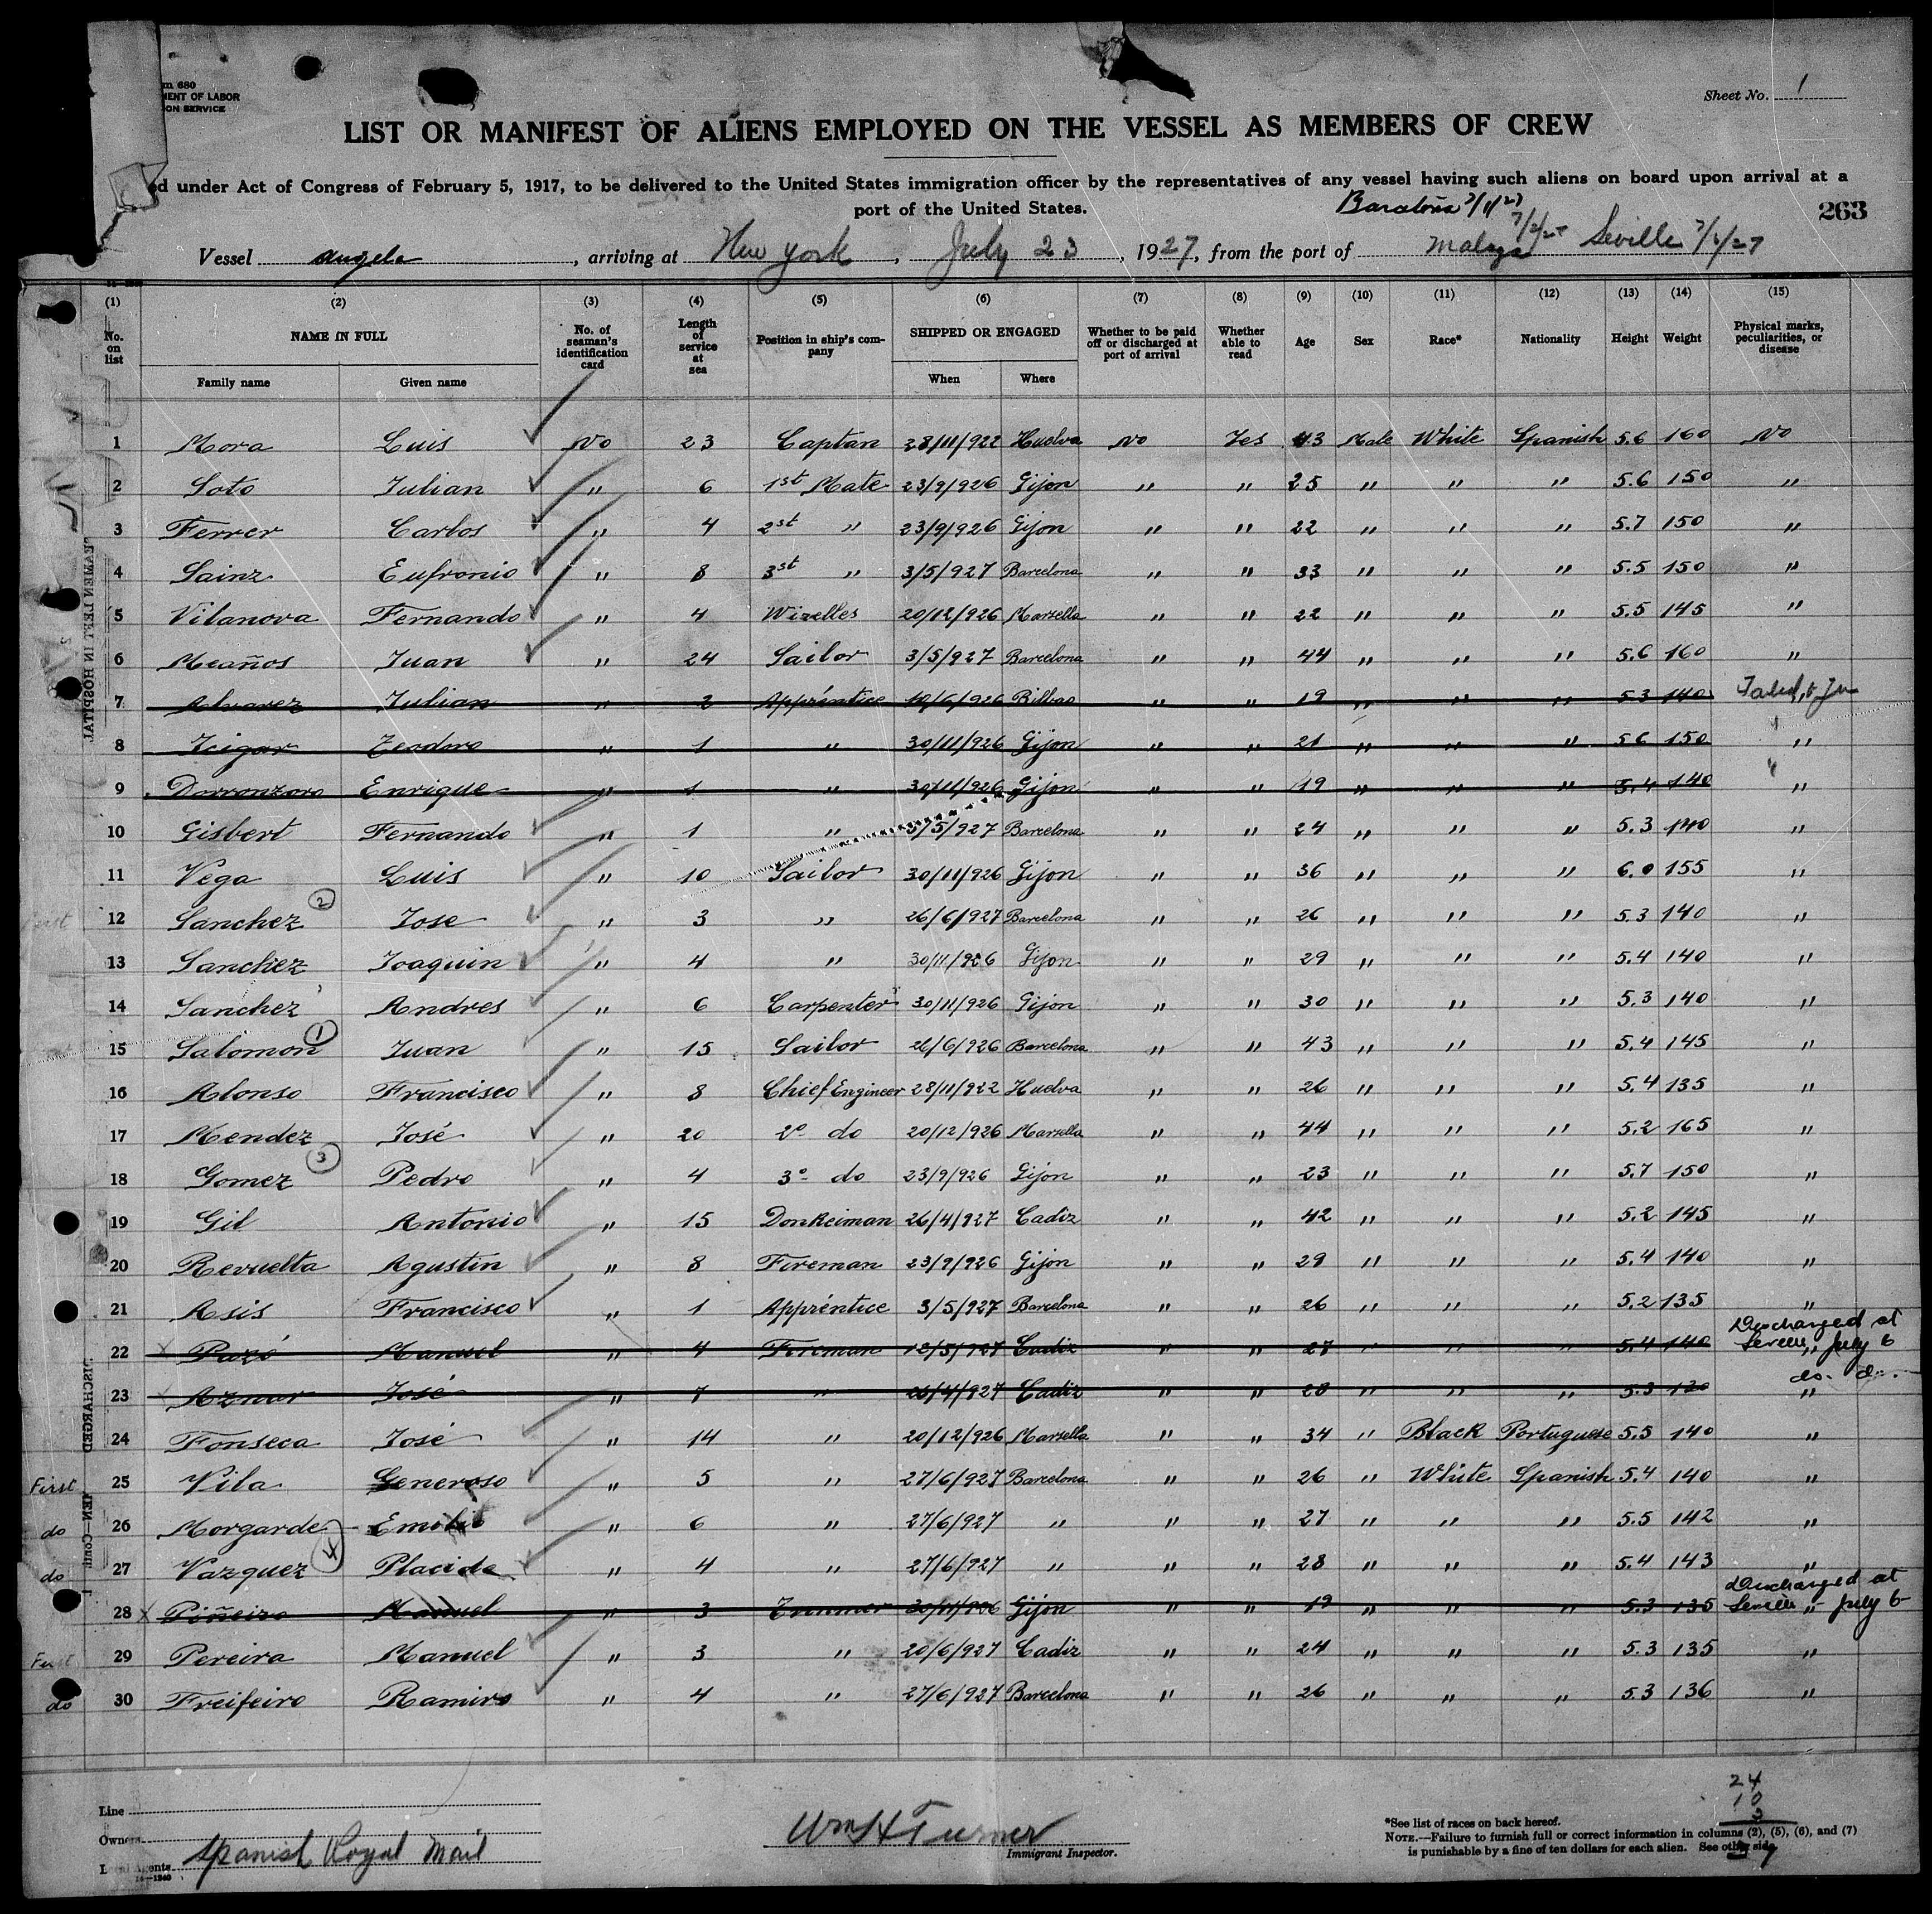 m 680
MENT OF LABOR
ON SERVICE
Sheet No. 1
LIST OR MANIFEST OF ALIENS EMPLOYED ON THE VESSEL AS MEMBERS OF CREW
ed under Act of Congress of February 5, 1917, to be delivered to the United States immigration officer by the representatives of any vessel having such aliens on board upon arrival at a
port of the United States.
263
Vessel Angela, arriving at New York, July 23, 1927, from the port of Malaga 7/2/27 Seville 7/6/27
(1) (2) (3) (4) (5) (6) (7) (8) (9) (10) (11) (12) (13) (14) (15)
No. on list NAME IN FULL No. of seaman's identification card Length of service at sea Position in ship's company SHIPPED OR ENGAGED Whether to be paid off or discharged at port of arrival Whether able to read Age Sex Race* Nationality Height Weight Physical marks, peculiarities, or disease
Family name Given name When Where
1 Mora Luis No 23 Captan 28/11/922 Huelva No Yes 43 Male White Spanish 5.6 160 No
2 Soto Julian " 6 1st Mate 23/9/926 Gijon " " 25 " " " 5.6 150 "
3 Ferrer Carlos " 4 2st " 23/9/926 Gijon " " 22 " " " 5.7 150 "
4 Sainz Eufronio " 8 3st " 3/5/927 Barcelona " " 33 " " " 5.5 150 "
5 Vilanova Fernando " 4 Wizelles 20/12/926 Marsella " " 22 " " " 5.5 145 "
6 Meaños Juan " 24 Sailor 3/5/927 Barcelona " " 44 " " " 5.6 160 "
7 Alvarez Julian " 2 Appréntice 10/6/926 Bilbao " " 19 " " " 5.3 140 Failed to Jn
8 Icigar Teodoro " 1 " 30/11/926 Gijon " " 21 " " " 5.6 150 "
9 Dorronzoro Enrique " 1 " 30/11/926 Gijon " " 19 " " " 5.4 140 "
10 Gisbert Fernando " 1 " 3/5/927 Barcelona " " 24 " " " 5.3 140 "
11 Vega Luis " 10 Sailor 30/11/926 Gijon " " 36 " " " 6.0 155 "
First 12 Sanchez 2 Jose " 3 " 26/6/927 Barcelona " " 26 " " " 5.3 140 "
13 Sanchez Joaquin " 4 " 30/11/926 Gijon " " 29 " " " 5.4 140 "
14 Sanchez Andres " 6 Carpenter 30/11/926 Gijon " " 30 " " " 5.3 140 "
15 Salomon 1 Juan " 15 Sailor 26/6/926 Barcelona " " 43 " " " 5.4 145 "
16 Alonso Francisco " 8 Chief Engineer 28/11/922 Huelva " " 26 " " " 5.4 135 "
17 Mendez José " 20 2º do 20/12/926 Marsella " " 44 " " " 5.2 165 "
18 Gomez 3 Pedro " 4 3º do 23/9/926 Gijon " " 23 " " " 5.7 150 "
19 Gil Antonio " 15 Donkeiman 26/4/927 Cadiz " " 42 " " " 5.2 145 "
20 Revuelta Agustin " 8 Fireman 23/9/926 Gijon " " 29 " " " 5.4 140 "
21 Asis Francisco " 1 Appréntice 3/5/927 Barcelona " " 26 " " " 5.2 135 "
22 Pazó Manuel " 4 Fireman 12/5/927 Cadiz " " 27 " " " 5.4 140 " Discharged at Seville July 6
23 Aznar José " 7 " 26/4/927 Cadiz " " 28 " " " 5.3 130 " do. do.
24 Fonseca José " 14 " 20/12/926 Marsella " " 34 " Black Portuguese 5.5 140 "
First 25 Vila Generoso " 5 " 27/6/927 Barcelona " " 26 " White Spanish 5.4 140 "
do 26 Morgarde Emilio " 6 " 27/6/927 " " " 27 " " " 5.5 142 "
do 27 Vazquez 4 Placido " 4 " 27/6/927 " " " 28 " " " 5.4 143 "
28 Piñeiro Manuel " 3 Trimmer 30/11/926 Gijon " " 19 " " " 5.3 135 " Discharged at Seville July 6
First 29 Pereira Manuel " 3 " 20/6/927 Cadiz " " 24 " " " 5.3 135 "
do 30 Freifeiro Ramiro " 4 " 27/6/927 Barcelona " " 26 " " " 5.3 136 "
SEAMEN LEFT IN HOSPITAL
DISCHARGED
24
10
3
Line
Owners
Local Agents Spanish Royal Mail
14—1240
Wm H Turner
Immigrant Inspector.
*See list of races on back hereof.
NOTE.—Failure to furnish full or correct information in columns (2), (5), (6), and (7)
is punishable by a fine of ten dollars for each alien. See other side